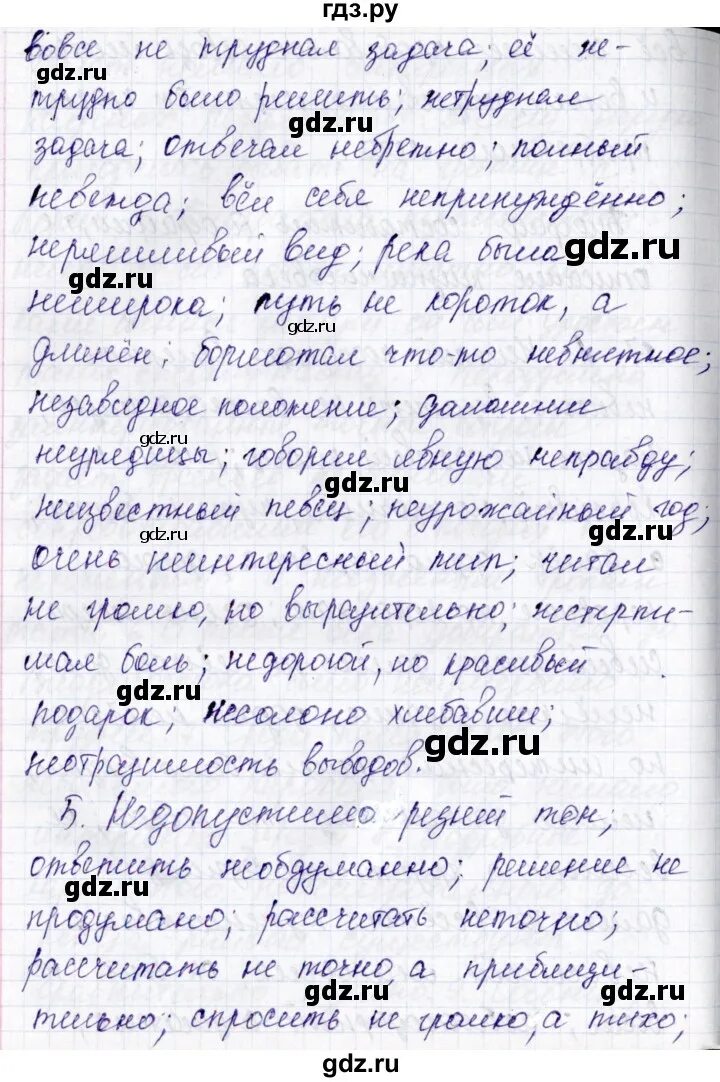 гдз.ру
вовсе не трудная задача; её не-
gdz.ru
трудно было решить; нетрудная
gdz.ru
задача; отвечал небрежно; полный
gdz.ru
невежда; вёл себя непринуждённо;
gdz.ru
неряшливый вид; река была
gdz.ru
неширока; путь не короток, а
gdz.ru
длинён; бормотал что-то невнятное;
незавидное положение; домашние
gdz.ru
неурядицы; говорил явную неправду;
gdz.ru
неизвестный певец; неурожайный год;
gdz.ru
gdz.ru
очень неинтересный тип; читал
не громко, но выразительно; нестерпи-
мая боль; недорогой, но красивый
gdz.ru
подарок; несолоно хлебавши;
gdz.ru
неотразимость выводов.
5. Недопустимо резкий тон;
ответить необдуманно; решение не
gdz.ru
продумано; рассчитать неточно;
gdz.ru
рассчитать не точно, а приблизи-
gdz.ru
gdz.ru
тельно; спросить не громко, а тихо;
gdz.ru